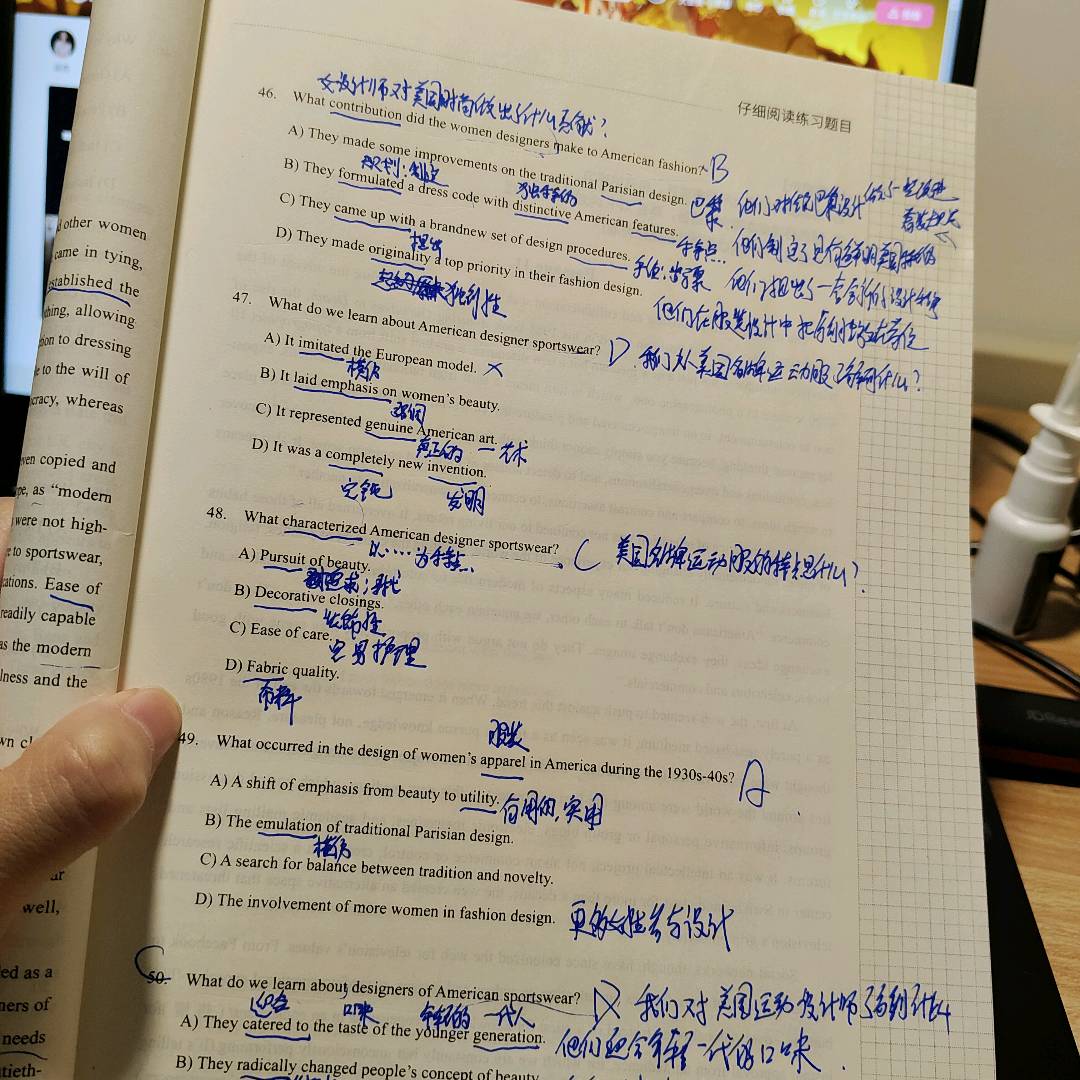 仔细阅读练习题目
d other women
came in tying,
established the
thing, allowing
ion to dressing
e to the will of
ocracy, whereas
ven copied and
pe, as “modern
were not high-
e to sportswear,
cations. Ease of
readily capable
as the modern
lness and the
well,
ed as a
ners of
needs
女设计师对美国时尚做出了什么贡献?
46. What contribution did the women designers make to American fashion? B
A) They made some improvements on the traditional Parisian design. 巴黎 他们对传统巴黎设计做了一些改进
B) They formulated a dress code with distinctive American features.
C) They came up with a brandnew set of design procedures.
提出
D) They made originality a top priority in their fashion design.
他们在服装设计中把原创性放在首位
独创性
47. What do we learn about American designer sportswear? D 我们从美国名牌运动服了解到什么?
A) It imitated the European model. ×
模仿
B) It laid emphasis on women's beauty.
强调
C) It represented genuine American art.
真正的 艺术
D) It was a completely new invention.
完全 发明
48. What characterized American designer sportswear? C 美国名牌运动服的特点是什么?
以····为特点
A) Pursuit of beauty.
追求;寻找
B) Decorative closings.
装饰性
C) Ease of care.
容易护理
D) Fabric quality.
布料
服装
49. What occurred in the design of women's apparel in America during the 1930s-40s? A
A) A shift of emphasis from beauty to utility. 有用的,实用
B) The emulation of traditional Parisian design.
模仿
C) A search for balance between tradition and novelty.
D) The involvement of more women in fashion design. 更多女性参与设计
50. What do we learn about designers of American sportswear? D 我们对美国运动设计师了解到什么
迎合 口味 年轻的 一代人
A) They catered to the taste of the younger generation. 他们迎合年轻一代的口味
B) They radically changed people's concept of beauty